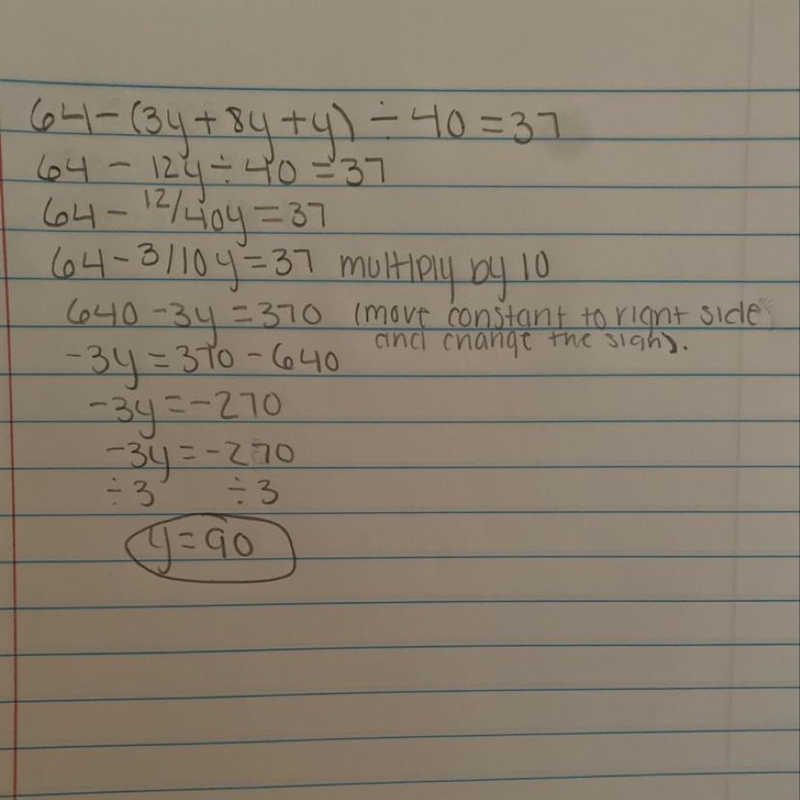 64-(3y+8y+y) ÷ 40=37
64 - 12y÷40 =37
64- 12/40y=37
64-3/10y=37 multiply by 10
640 -3y=370 (move constant to right side
and change the sign).
-3y=370-640
-3y=-270
-3y=-270
÷3 ÷3
y=90